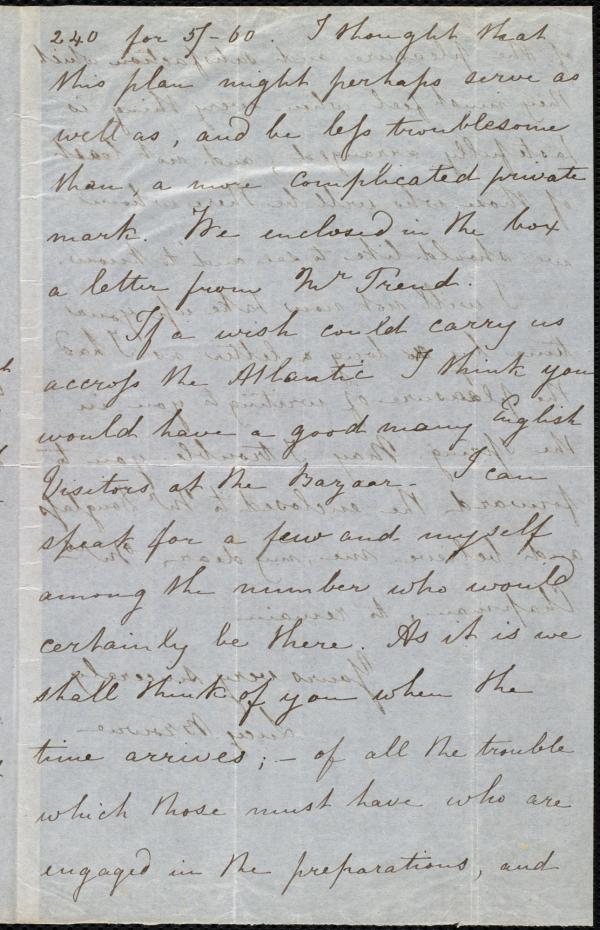 240 for 5/- 60. I thought that
this plan might perhaps serve as
well as, and be less troublesome
than a more complicated private
mark. We enclosed in the box
a letter from Mr Trend.
If a wish could carry us
accross the Atlantic I think you
would have a good many English
Visitors at the Bazaar - I can
speak for a few and myself
among the number who would
certainly be there. As it is we
shall think of you when the
time arrives; - of all the trouble
which those must have who are
engaged in the preparations, and